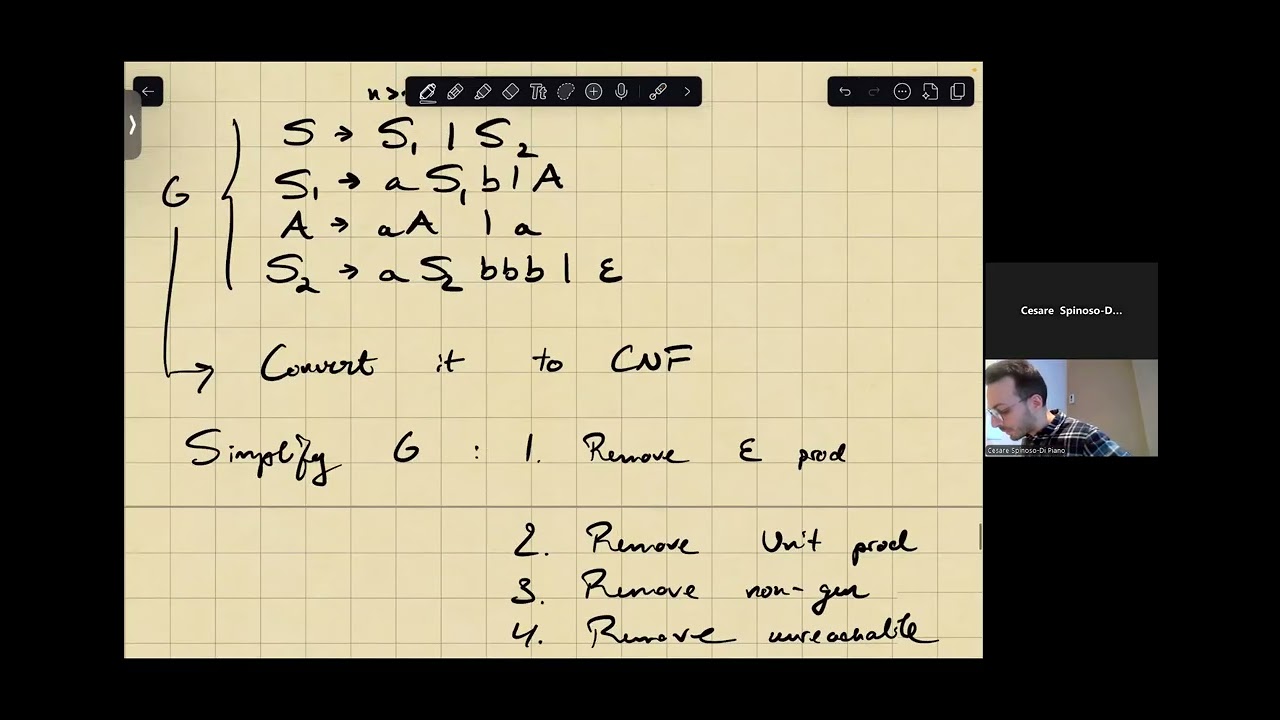 n >
S → S₁ | S₂
G
S₁ → a S₁ b | A
A → aA | a
S₂ → a S₂ bbb | ε
Convert it to CNF
Simplify G : 1. Remove ε prod
2. Remove Unit prod
3. Remove non-gen
4. Remove unreachable
Tt
Cesare Spinoso-D...
Cesare Spinoso-Di Piano